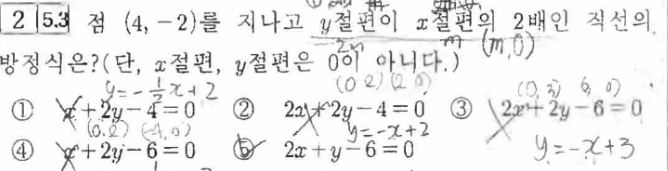 2 5.3 점 (4, -2)를 지나고 y절편이 x절편의 2배인 직선의
2m m (m,0)
방정식은?(단, x절편, y절편은 0이 아니다.)
y=-½x+2 (0 2) (2 0) (0, 3)
① x+2y-4=0 ② 2x+2y-4=0 ③ 2x+2y-6=0
(0.2) (-4,0) y=-x+2
④ x+2y-6=0 ⑤ 2x+y-6=0 y=-x+3